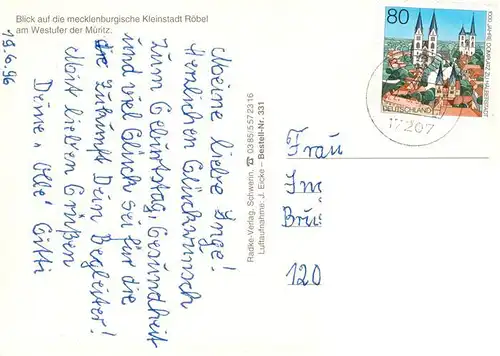 Blick auf die mecklenburgische Kleinstadt Röbel
am Westufer der Müritz.
19.6.96
Meine liebe Inge!
Herzlichen Glückwunsch
zum Geburtstag, Gesundheit
und viel Glück sei für die
die Zukunft Dein Begleiter!
Mit lieben Grüßen
Deine "Olle" Gitti
Radke-Verlag, Schwerin, ☎ 0385/5572316
Luftaufnahme: J. Eicke – Bestell-Nr. 331
80
DEUTSCHLAND
1000 JAHRE DOMWEIHE ZU HALBERSTADT
17207
Frau
Im
Brü
120